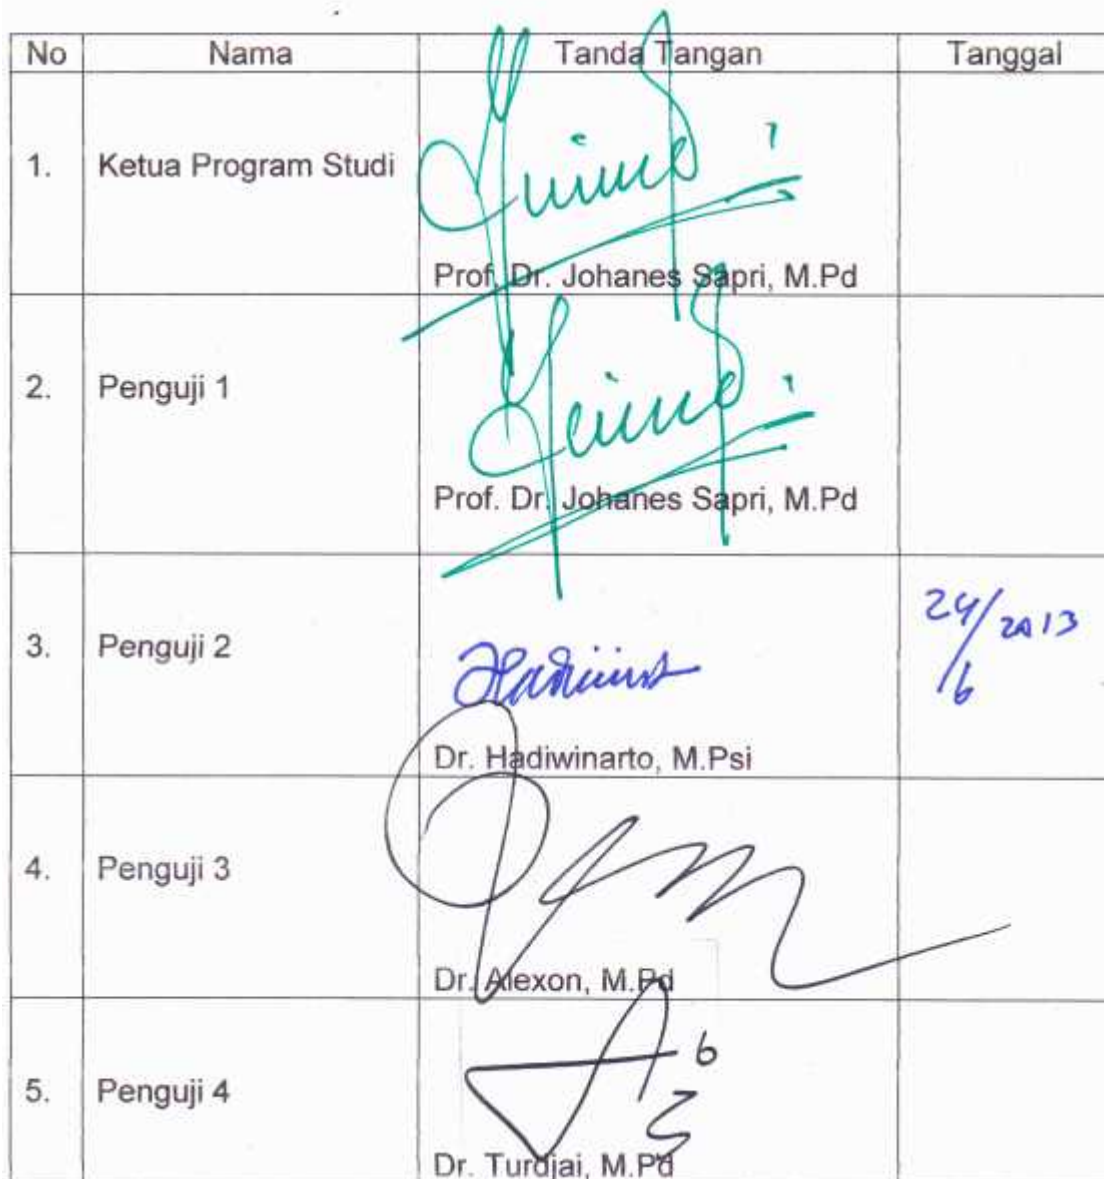 No Nama Tanda Tangan Tanggal
1. Ketua Program Studi
Prof. Dr. Johanes Sapri, M.Pd
2. Penguji 1
Prof. Dr. Johanes Sapri, M.Pd
3. Penguji 2
24/6 2013
Dr. Hadiwinarto, M.Psi
4. Penguji 3
Dr. Alexon, M.Pd
5. Penguji 4
Dr. Turdjai, M.Pd